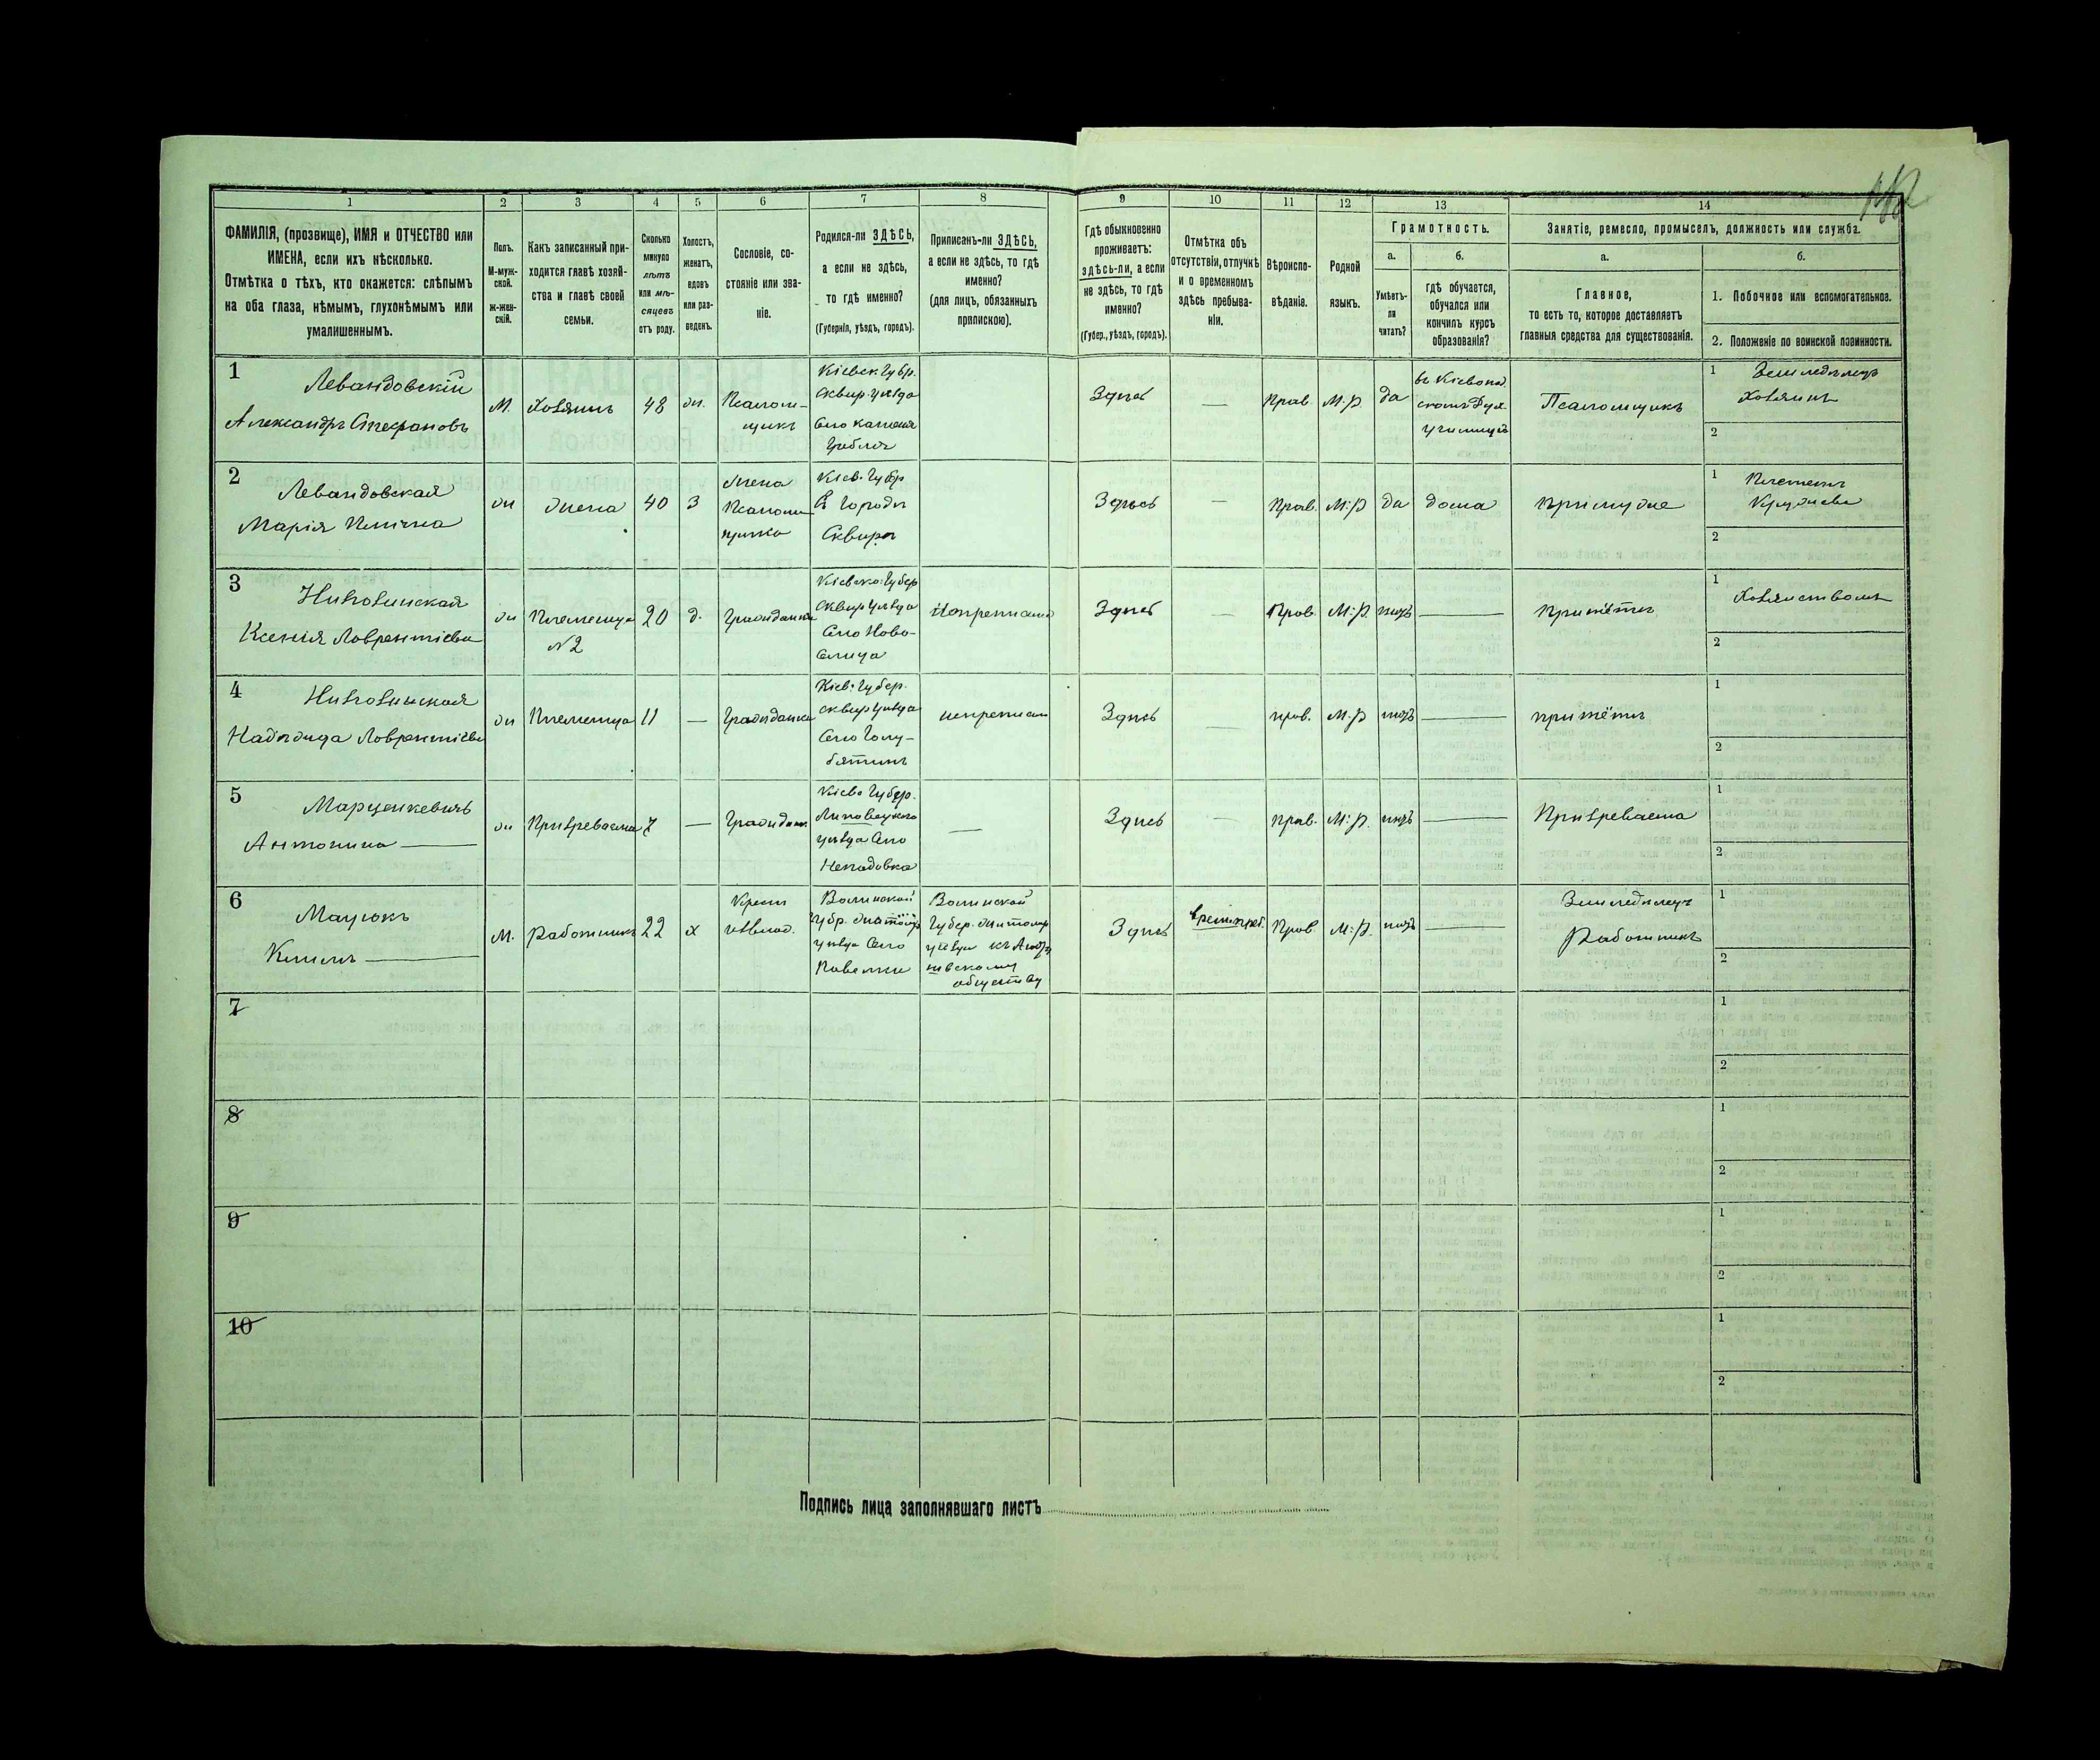 1 2 3 4 5 6 7 8 9 10 11 12 13 14
ФАМИЛІЯ, (прозвище), ИМЯ и ОТЧЕСТВО или
ИМЕНА, если ихъ нѣсколько.
Отмѣтка о тѣхъ, кто окажется: слѣпымъ
на оба глаза, нѣмымъ, глухонѣмымъ или
умалишеннымъ.
Полъ.
М-муж-
ской.
ж-жен-
скій.
Какъ записанный при-
ходится главѣ хозяй-
ства и главѣ своей
семьи.
Сколько
минуло
лѣтъ
или мѣ-
сяцевъ
отъ роду.
Холостъ,
женатъ,
вдовъ
или раз-
веденъ.
Сословіе, со-
стояніе или зва-
ніе.
Родился-ли ЗДѢСЬ,
а если не здѣсь,
то гдѣ именно?
(Губернія, уѣздъ, городъ).
Приписанъ-ли ЗДѢСЬ,
а если не здѣсь, то гдѣ
именно?
(для лицъ, обязанныхъ
припискою).
Гдѣ обыкновенно
проживаетъ:
здѣсь-ли, а если
не здѣсь, то гдѣ
именно?
(Губер., уѣздъ, городъ).
Отмѣтка объ
отсутствіи, отлучкѣ
и о временномъ
здѣсь пребыва-
ніи.
Вѣроиспо-
вѣданіе.
Родной
языкъ.
Грамотность.
а.
Умѣетъ-
ли
читать?
б.
гдѣ обучается,
обучался или
кончилъ курсъ
образованія?
Занятіе, ремесло, промыселъ, должность или служба.
а.
Главное,
то есть то, которое доставляетъ
главныя средства для существованія.
б.
1. Побочное или вспомогательное.
2. Положеніе по воинской повинности.
1
Левандовскій
Александръ Стефановъ
М.
Хозяинъ
48
ж.
Псалом-
щикъ
Кіевск. Губр.
Сквир. уѣзда
Село Каменя
Гребля
Здѣсь
—
Прав.
М.Р.
да
въ Кіевопод.
скомъ Дух.
училищѣ
Псаломщикъ
1
Земледѣлецъ
Хозяинъ
2
2
Левандовская
Марія
ж
жена
40
З
жена
Псалом
щика
Кіев. Губр
В Городѣ
Сквирѣ
Здѣсь
—
Прав.
М.Р
да
дома
при мужѣ
1
2
3
Ксенія Лаврентіева
ж
Племеница
№2
20
д.
Гражданка
Кіевско. Губер
Сквир уѣзда
Село Ново-
селица
Здѣсь
—
Прав.
М.Р.
нѣтъ
—
При тётѣ
1
Хозяйствомъ
2
4
Надежда Лаврентіева
ж
Племеница
11
—
Гражданка
Кіев. Губер.
Сквир уѣзда
Село Голу-
бятинъ
неприписан
Здѣсь
—
прав.
М.Р
нѣтъ
—
при тётѣ
1
2
5
Марценкевичъ
Антонина —
ж
Призреваема
7
—
Граждан.
Кіевс Губер.
Липовецкого
уѣзда Село
Нападовка
—
Здѣсь
—
прав.
М.Р.
нѣтъ
—
Призреваема
1
2
6
Мацюкъ
Климъ —
М.
Работникъ
22
х
Крест.
Волинской
Губр. Житомр
уѣзда Село
Волинской
Губер. Житомир
уѣзда
обществу
Здѣсь
Прав
М.Р.
нѣтъ
—
Земледѣлецъ
Работникъ
1
2
7
1
2
8
1
2
9
1
2
10
1
2
Подпись лица заполнявшаго листъ